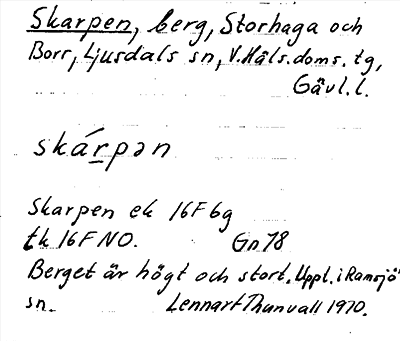 Skarpen, berg, Storhaga och
Borr, Ljusdals sn, V. Häls. doms. tg,
Gävl. l.
skárpən
Skarpen ek 16F6g
tk 16F NO. Gn 78
Berget är högt och stort. Uppl. i Ramsjö
sn. Lennart Thunvall 1970.